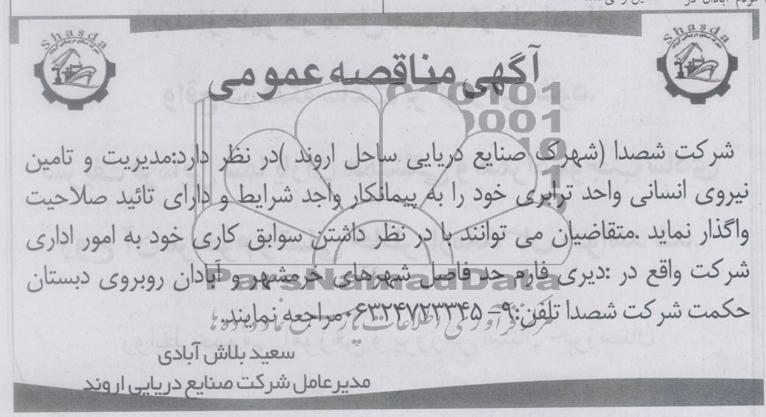 Shasda
Shasda
آگهی مناقصه عمومی
شرکت شصدا (شهرک صنایع دریایی ساحل اروند )در نظر دارد:مدیریت و تامین
نیروی انسانی واحد ترابری خود را به پیمانکار واجد شرایط و دارای تائید صلاحیت
واگذار نماید .متقاضیان می توانند با در نظر داشتن سوابق کاری خود به امور اداری
شرکت واقع در :دیری فارم حد فاصل شهرهای خرمشهر و آبادان روبروی دبستان
حکمت شرکت شصدا تلفن:۹-۰۶۳۲۴۷۲۳۳۴۵مراجعه نمایند.
سعید بلاش آبادی
مدیرعامل شرکت صنایع دریایی اروند
ParsNamadData